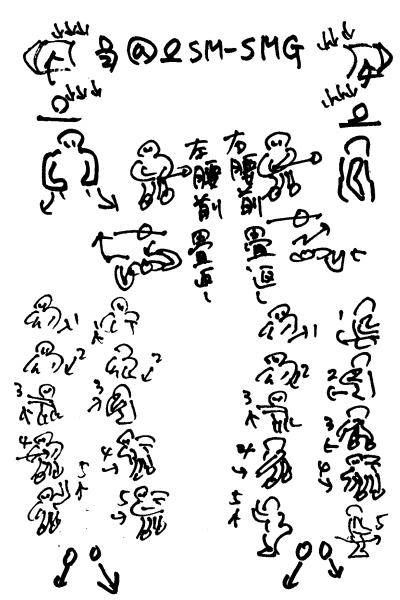 @ SM-SMG
左腰前畳返し
右腰前畳返し
1
1
2
2
3
3
4
4
5
5
1
1
2
2
3
3
4
4
5
5